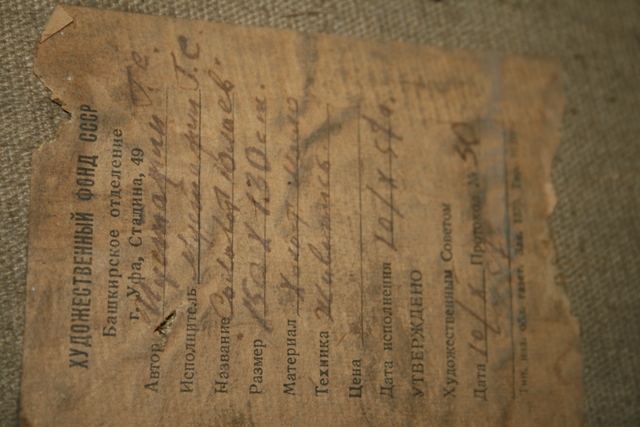 ХУДОЖЕСТВЕННЫЙ ФОНД СССР
Башкирское отделение
г. Уфа, Сталина, 49
Автор Мустафин Г. С.
Исполнитель Мустафин Г. С.
Название Салават Юлаев.
Размер 150 х 130 см.
Материал Холст, масло
Техника Живопись
Цена
Дата исполнения 10/X
УТВЕРЖДЕНО
Художественным Советом
Дата 10/X Протокол № 30